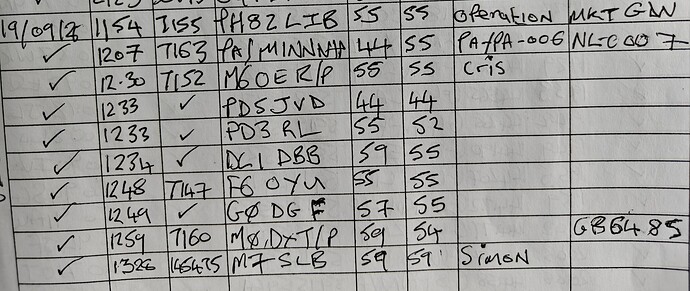 19/09/2 1154 7155 PH82LIB 55 55 Operation MKT GDN
✓ 1207 7163 PA/M1NNNH 44 55 PA/PA-006 NL-C007
✓ 12.30 7152 M6OER/P 55 55 Cris
✓ 1233 ✓ PD5JVD 44 44
✓ 1233 ✓ PD3RL 55 52
✓ 1234 ✓ DG1DBB 59 55
✓ 1248 7147 F6OYU 55 55
✓ 1249 ✓ GØDGF 57 55
✓ 1259 7160 MØ.DXT/P 59 54 GB6485
✓ 1328 145475 M7SLB 59 59 Simon